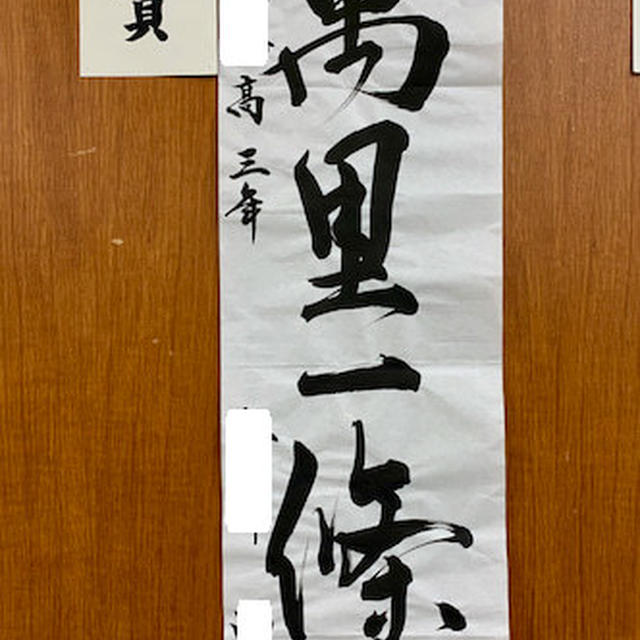 萬里一條
高三年
賞